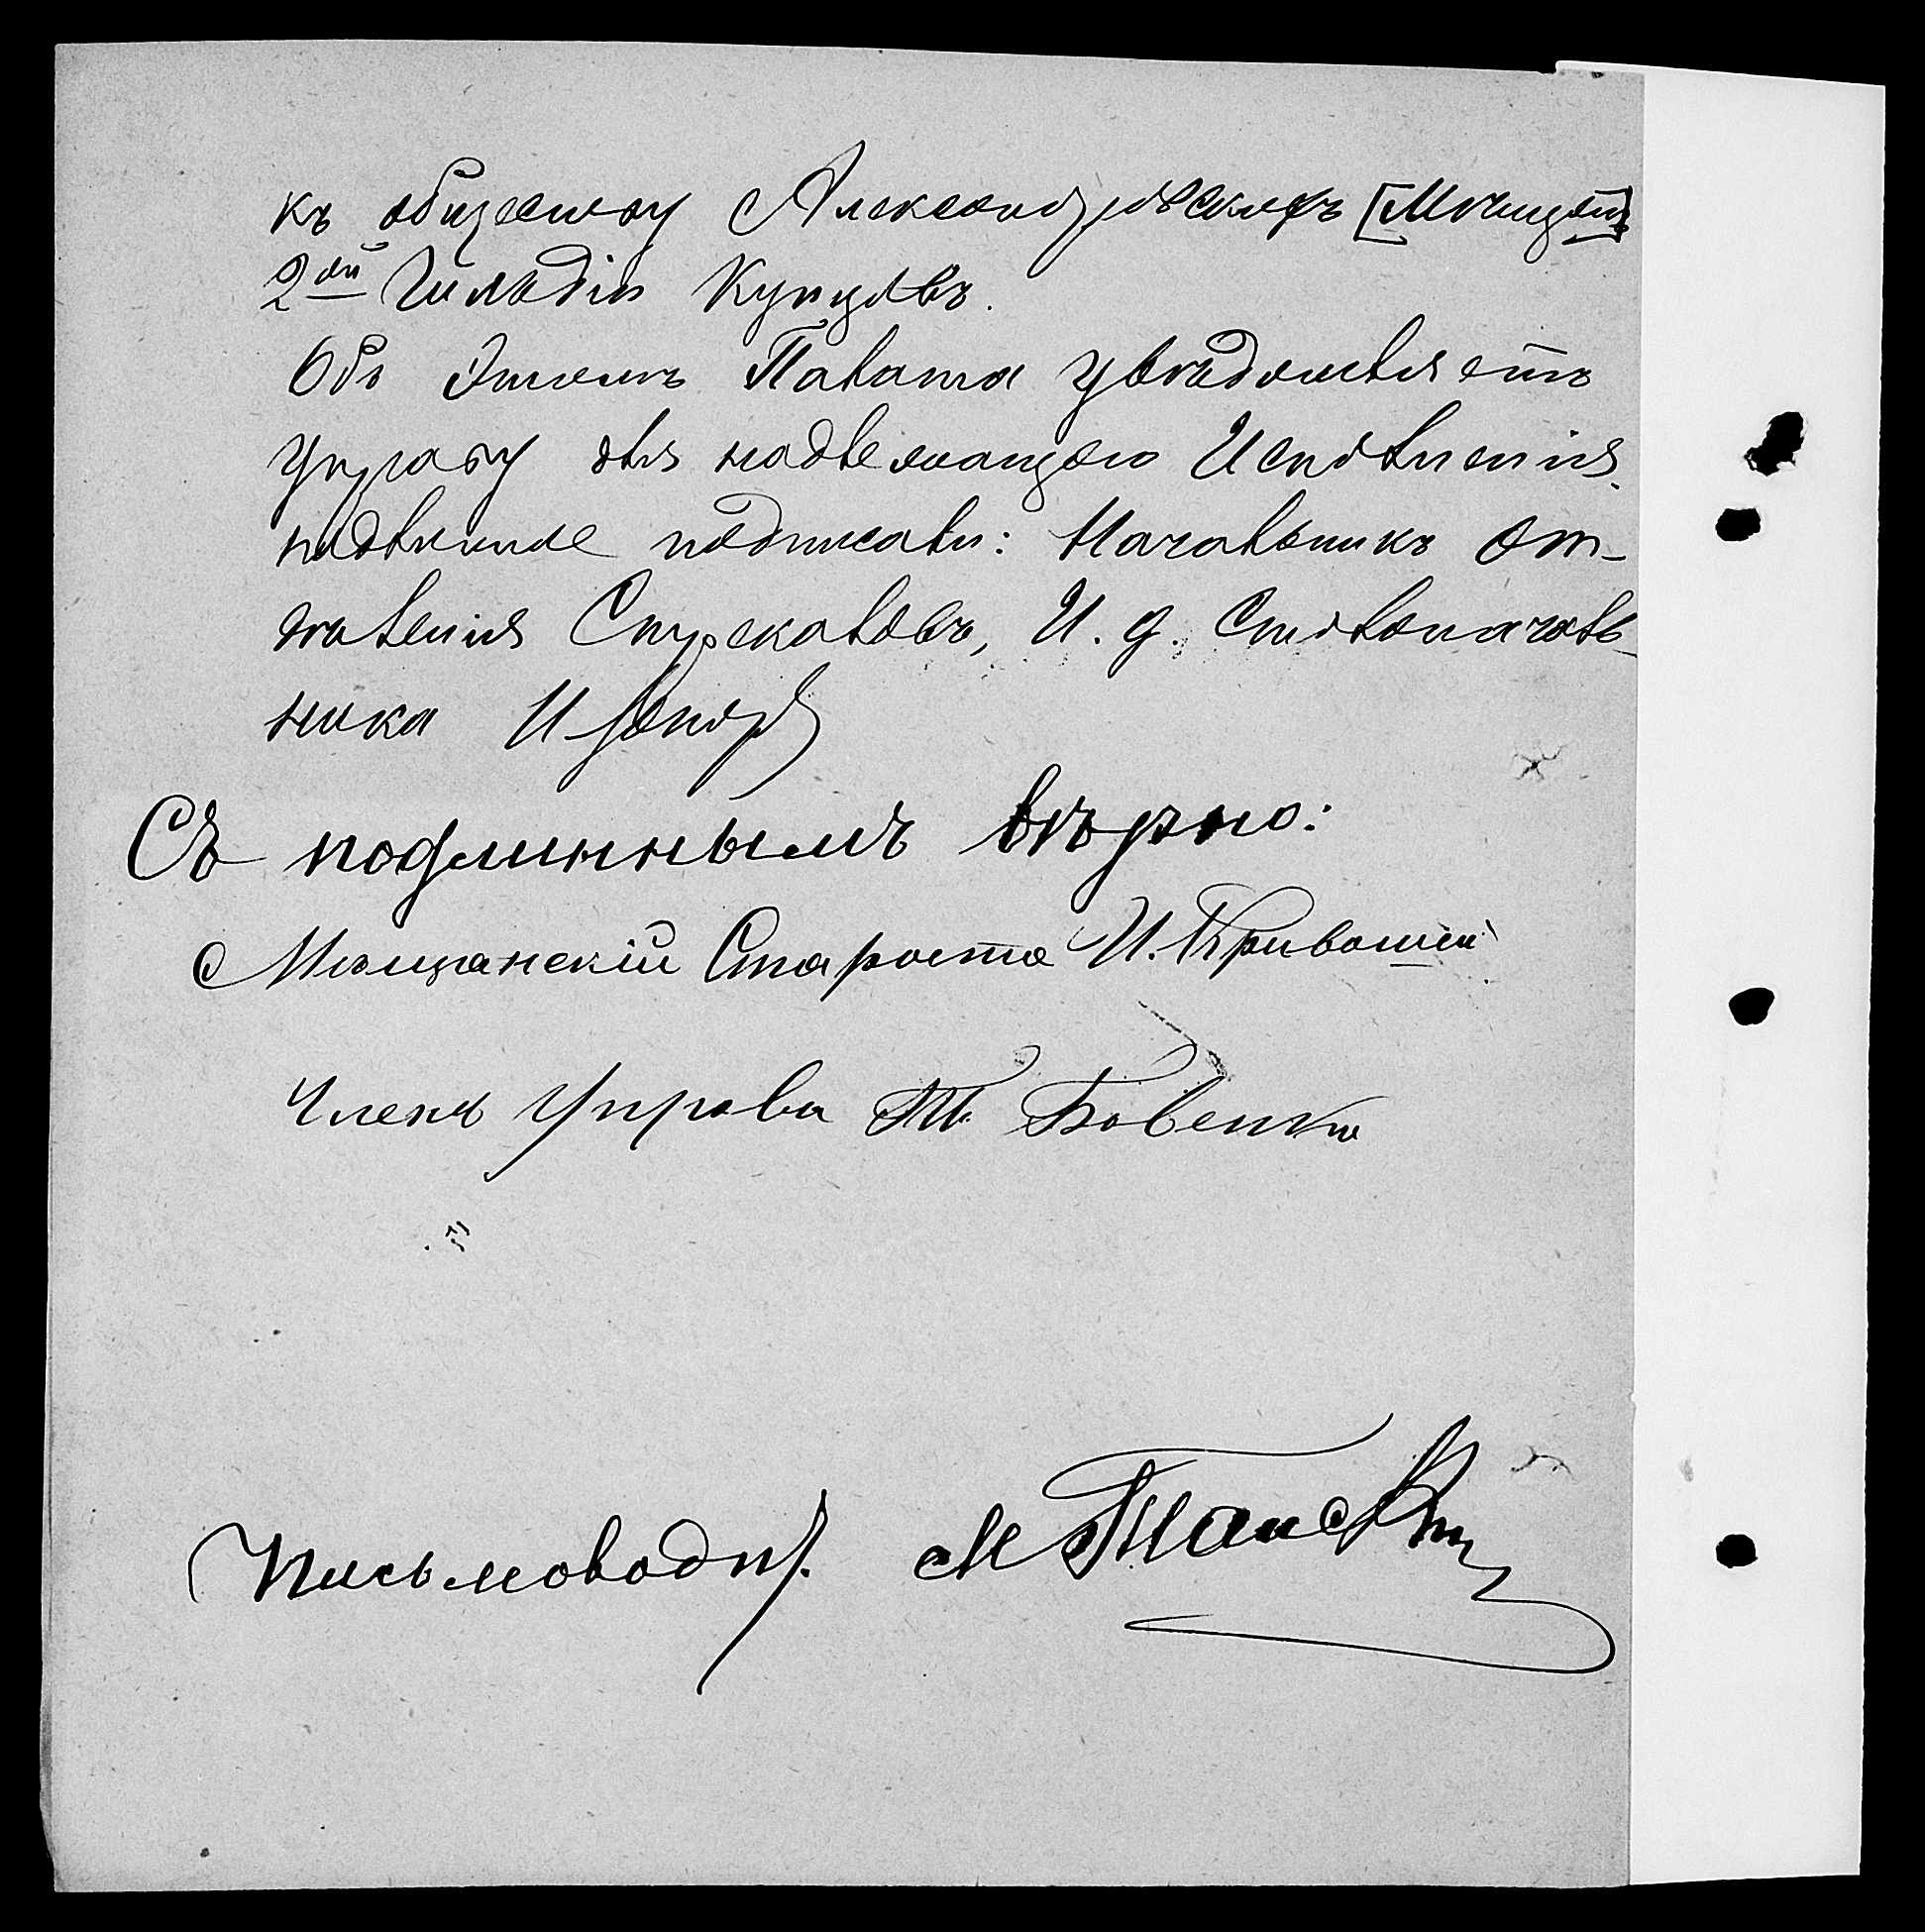 къ обществу Александровскихъ [Мѣщан]
2ой Гильдіи Купцовъ.
Объ этомъ Палата увѣдомляетъ
управу для надлежащаго Исполненія.
подлинное подписали: Начальникъ От-
дѣленія Стрекаловъ, И. д. Столоначаль-
ника
Съ подлиннымъ вѣрно:
Мѣщанскій Староста И. Кривошей
Членъ Управы Т. Бовенко
Письмоводит. М